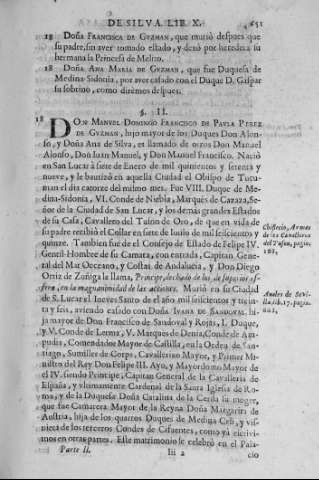 DE SILVA. LIB. X. 651
18 Doña FRANCISCA DE GVZMAN, que murió despues que
su padre, sin aver tomado estado, y dexó por heredera su
hermana la Princesa de Melito.
18 Doña ANA MARIA DE GVZMAN, que fue Duquesa de
Medina-Sidonia, por aver casado con el Duque D. Gaspar
su sobrino, como dirèmos despues.
§. II.
18 DON MANVEL DOMINGO FRANCISCO DE PAVLA PEREZ
DE GVZMAN, hijo mayor de los Duques Don Alon-
so, y Doña Ana de Silva, es llamado de otros Don Manuel
Alonso, Don Iuan Manuel, y Don Manuel Francisco. Nació
en San Lucar à siete de Enero de mil quinientos y setenta y
nueve, y le bautizò en aquella Ciudad el Obispo de Tucu-
man el dia catorze del mismo mes. Fue VIII. Duque de Me-
dina-Sidonia, VI. Conde de Niebla, Marquès de Cazaza, Se-
ñor de la Ciudad de San Lucar, y los demàs grandes Estados
de su Casa, Cavallero del Tuson de Oro, de que en vida de
su padre recibiò el Collar en siete de Iunio de mil seiscientos y
quinze. Tambien fue de el Consejo de Estado de Felipe IV.
Gentil-Hombre de su Camara, con entrada, Capitan Gene-
ral del Mar Occeano, y Costas de Andalucia, y Don Diego
Ortiz de Zuñiga le llama, Principe, dechado de los de superior es-
fera, en la magnanimidad de las acciones. Muriò en su Ciudad
de S. Lucar el Iueves Santo de el año mil seiscientos y trein-
ta y seis, aviendo casado con Doña IVANA DE SANDOVAL hi-
ja mayor de Don Francisco de Sandoval y Rojas, I. Duque,
y V. Conde de Lerma, V. Marques de Denia, Conde de Am-
pudia, Comendador Mayor de Castilla, en la Orden de San-
tiago, Sumiller de Corps, Cavallerizo Mayor, y Primer Mi-
nistro del Rey Don Felipe III. Ayo, y Mayordomo Mayor de
el IV. siendo Principe, Capitan General de la Cavalleria de
España, y ultimamente Cardenal de la Santa Iglesia de Ro-
ma, y de la Duquesa Doña Catalina de la Cerda su muger,
que fue Camarera Mayor de la Reyna Doña Margarita de
Austria, hija de los quartos Duques de Medina Celi, y vis-
nieta de los terceros Condes de Cifuentes, como yà escrivi-
mos en otras partes. Este matrimonio se celebrò en el Pala-
Parte II. Iii 2 cio
Chifletio, Armes
de les Cavalleros
del Tuson, pagin.
Anales de Sevi-
lla, lib. 17. pagin.